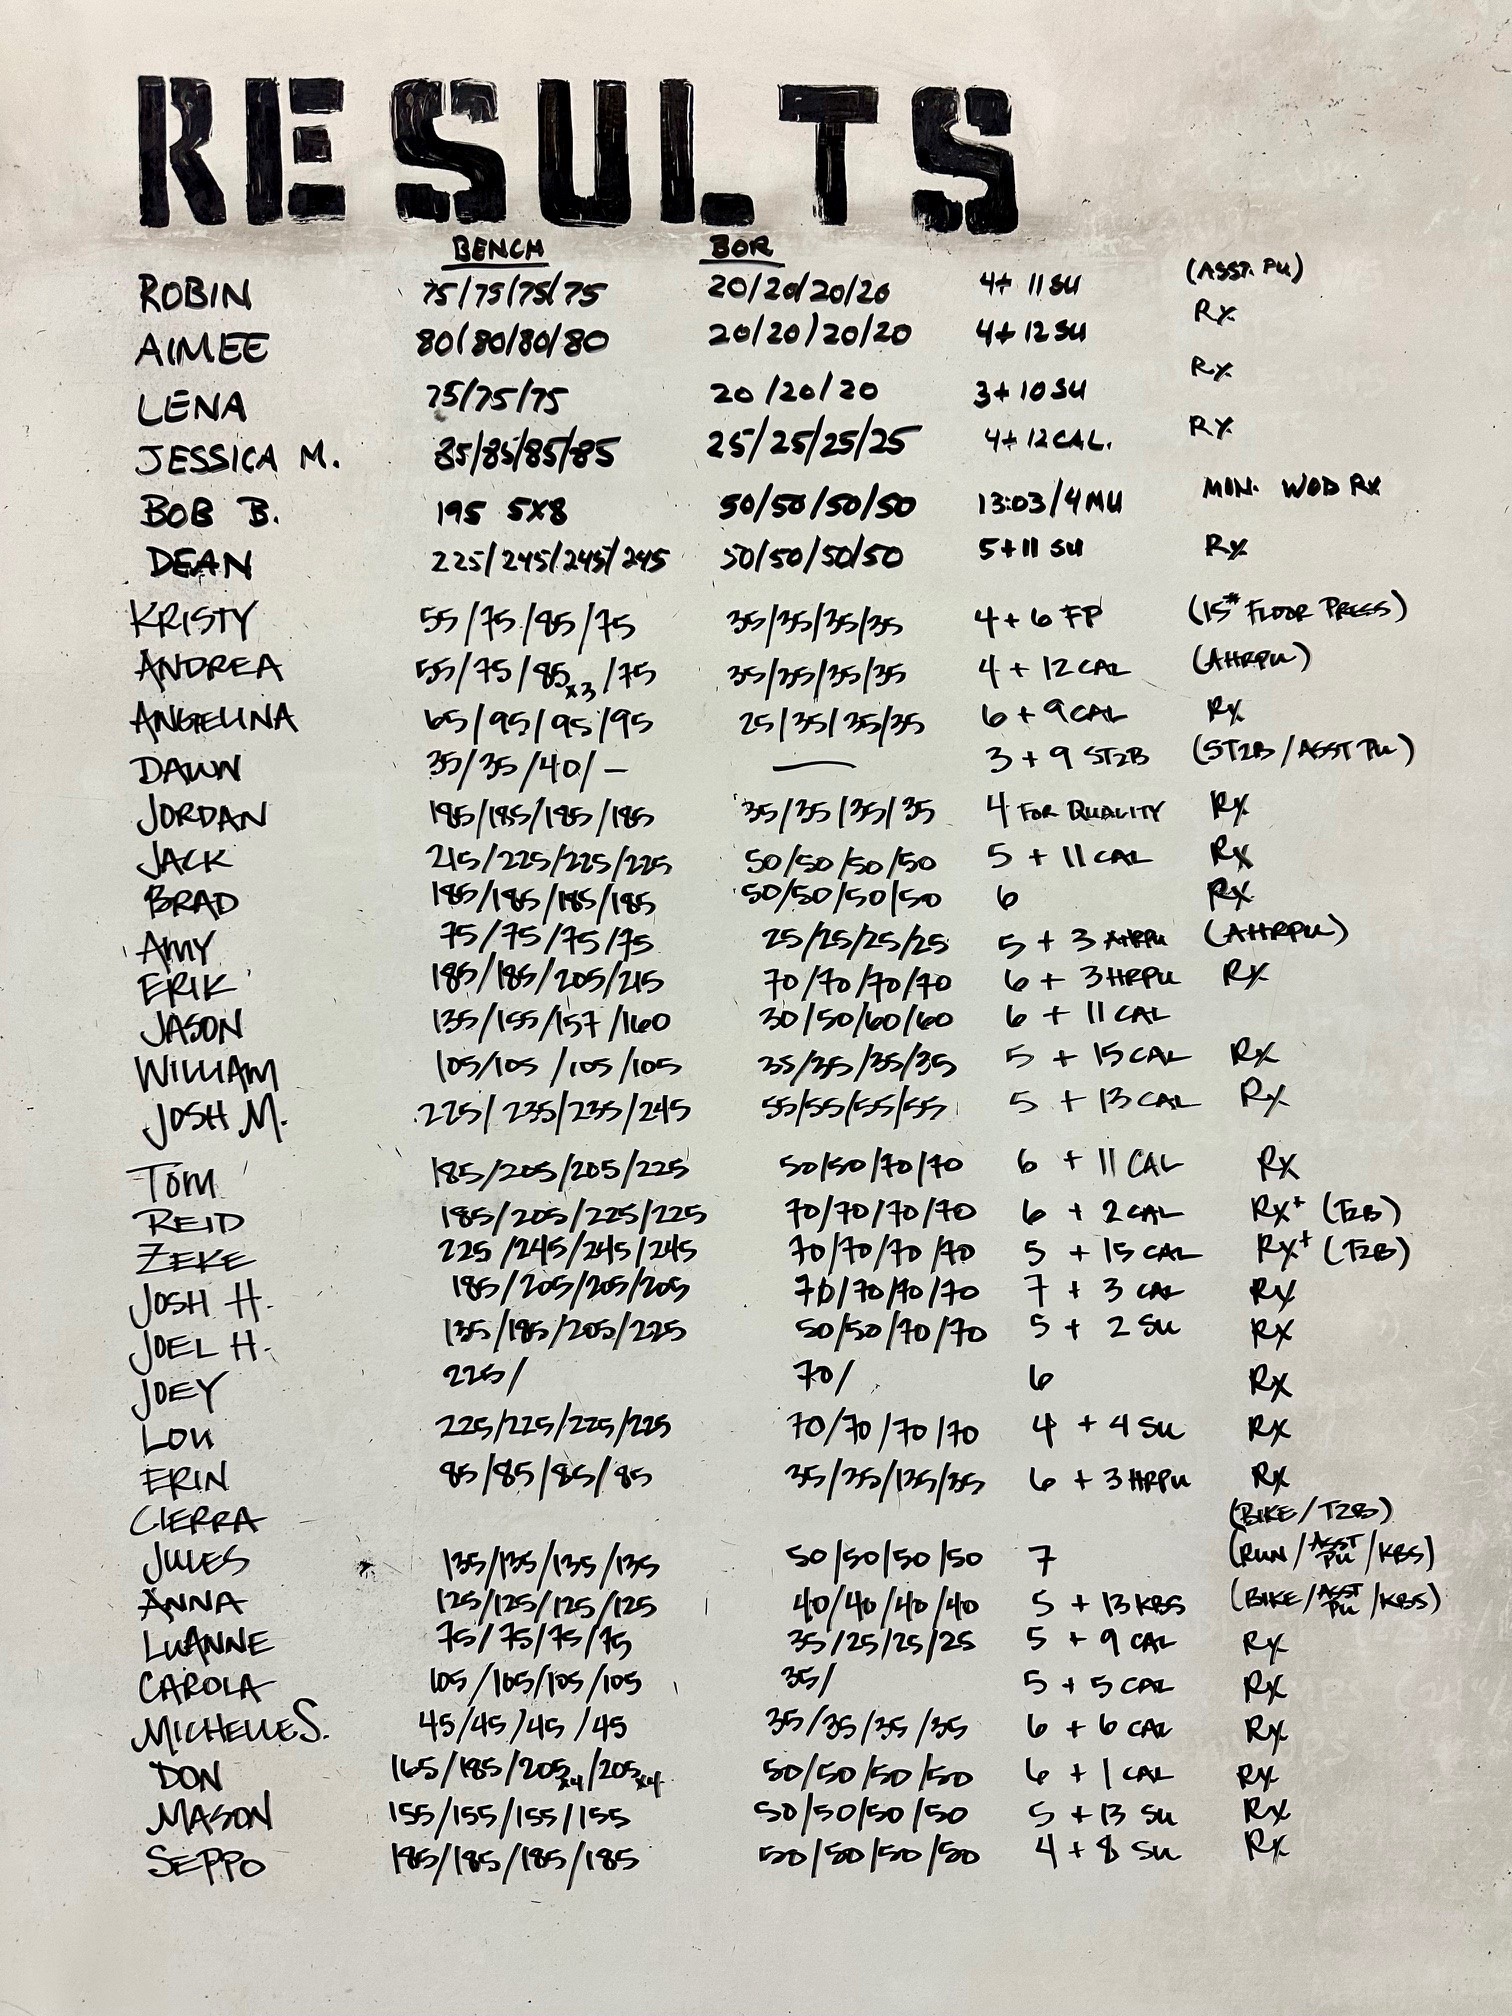 RESULTS
BENCH BOR
ROBIN 75/75/75/75 20/20/20/20 4+ 11 SU (ASST. PU)
AIMEE 80/80/80/80 20/20/20/20 4+ 12 SU Rx
LENA 75/75/75 20/20/20 3+ 10 SU Rx
JESSICA M. 85/85/85/85 25/25/25/25 4+ 12 CAL. Rx
BOB B. 195 5X8 50/50/50/50 13:03/4 MU MON. WOD RX
DEAN 225/245/245/245 50/50/50/50 5+11 SU Rx
KRISTY 55/75/85/75 35/35/35/35 4 + 6 FP (15# FLOOR PRESS)
ANDREA 55/75/85x3/75 35/35/35/35 4 + 12 CAL (AHRPU)
ANGELINA 65/95/95/95 25/35/35/35 6 + 9 CAL Rx
DAWN 35/35/40/— — 3 + 9 ST2B (ST2B/ASST PU)
JORDAN 185/185/185/185 35/35/35/35 4 FOR QUALITY Rx
JACK 215/225/225/225 50/50/50/50 5 + 11 CAL Rx
BRAD 185/185/185/185 50/50/50/50 6 Rx
AMY 75/75/75/75 25/25/25/25 5 + 3 AHRPU (AHRPU)
ERIK 185/185/205/215 70/70/70/70 6 + 3 HRPU Rx
JASON 135/155/157/160 30/50/60/60 6 + 11 CAL
WILLIAM 105/105/105/105 35/35/35/35 5 + 15 CAL Rx
JOSH M. 225/235/235/245 55/55/55/55 5 + 13 CAL Rx
TOM 185/205/205/225 50/50/70/70 6 + 11 CAL Rx
REID 185/205/225/225 70/70/70/70 6 + 2 CAL Rx+ (T2B)
ZEKE 225/245/245/245 70/70/70/70 5 + 15 CAL Rx+ (T2B)
JOSH H. 185/205/205/205 70/70/70/70 7 + 3 CAL Rx
JOEL H. 135/185/205/225 50/50/70/70 5 + 2 SU Rx
JOEY 225/ 70/ 6 Rx
LOU 225/225/225/225 70/70/70/70 4 + 4 SU Rx
ERIN 85/85/85/85 35/35/35/35 6 + 3 HRPU Rx
CIERRA (BIKE/T2B)
JULES 135/135/135/135 50/50/50/50 7 (RUN/ASST PU/KBS)
ANNA 125/125/125/125 40/40/40/40 5 + 13 KBS (BIKE/ASST PU/KBS)
LUANNE 75/75/75/75 35/25/25/25 5 + 9 CAL Rx
CAROLA 105/105/105/105 35/ 5 + 5 CAL Rx
MICHELLE S. 45/45/45/45 35/35/35/35 6 + 6 CAL Rx
DON 165/185/205x4/205x4 50/50/50/50 6 + 1 CAL Rx
MASON 155/155/155/155 50/50/50/50 5 + 13 SU Rx
SEPPO 185/185/185/185 50/50/50/50 4 + 8 SU Rx